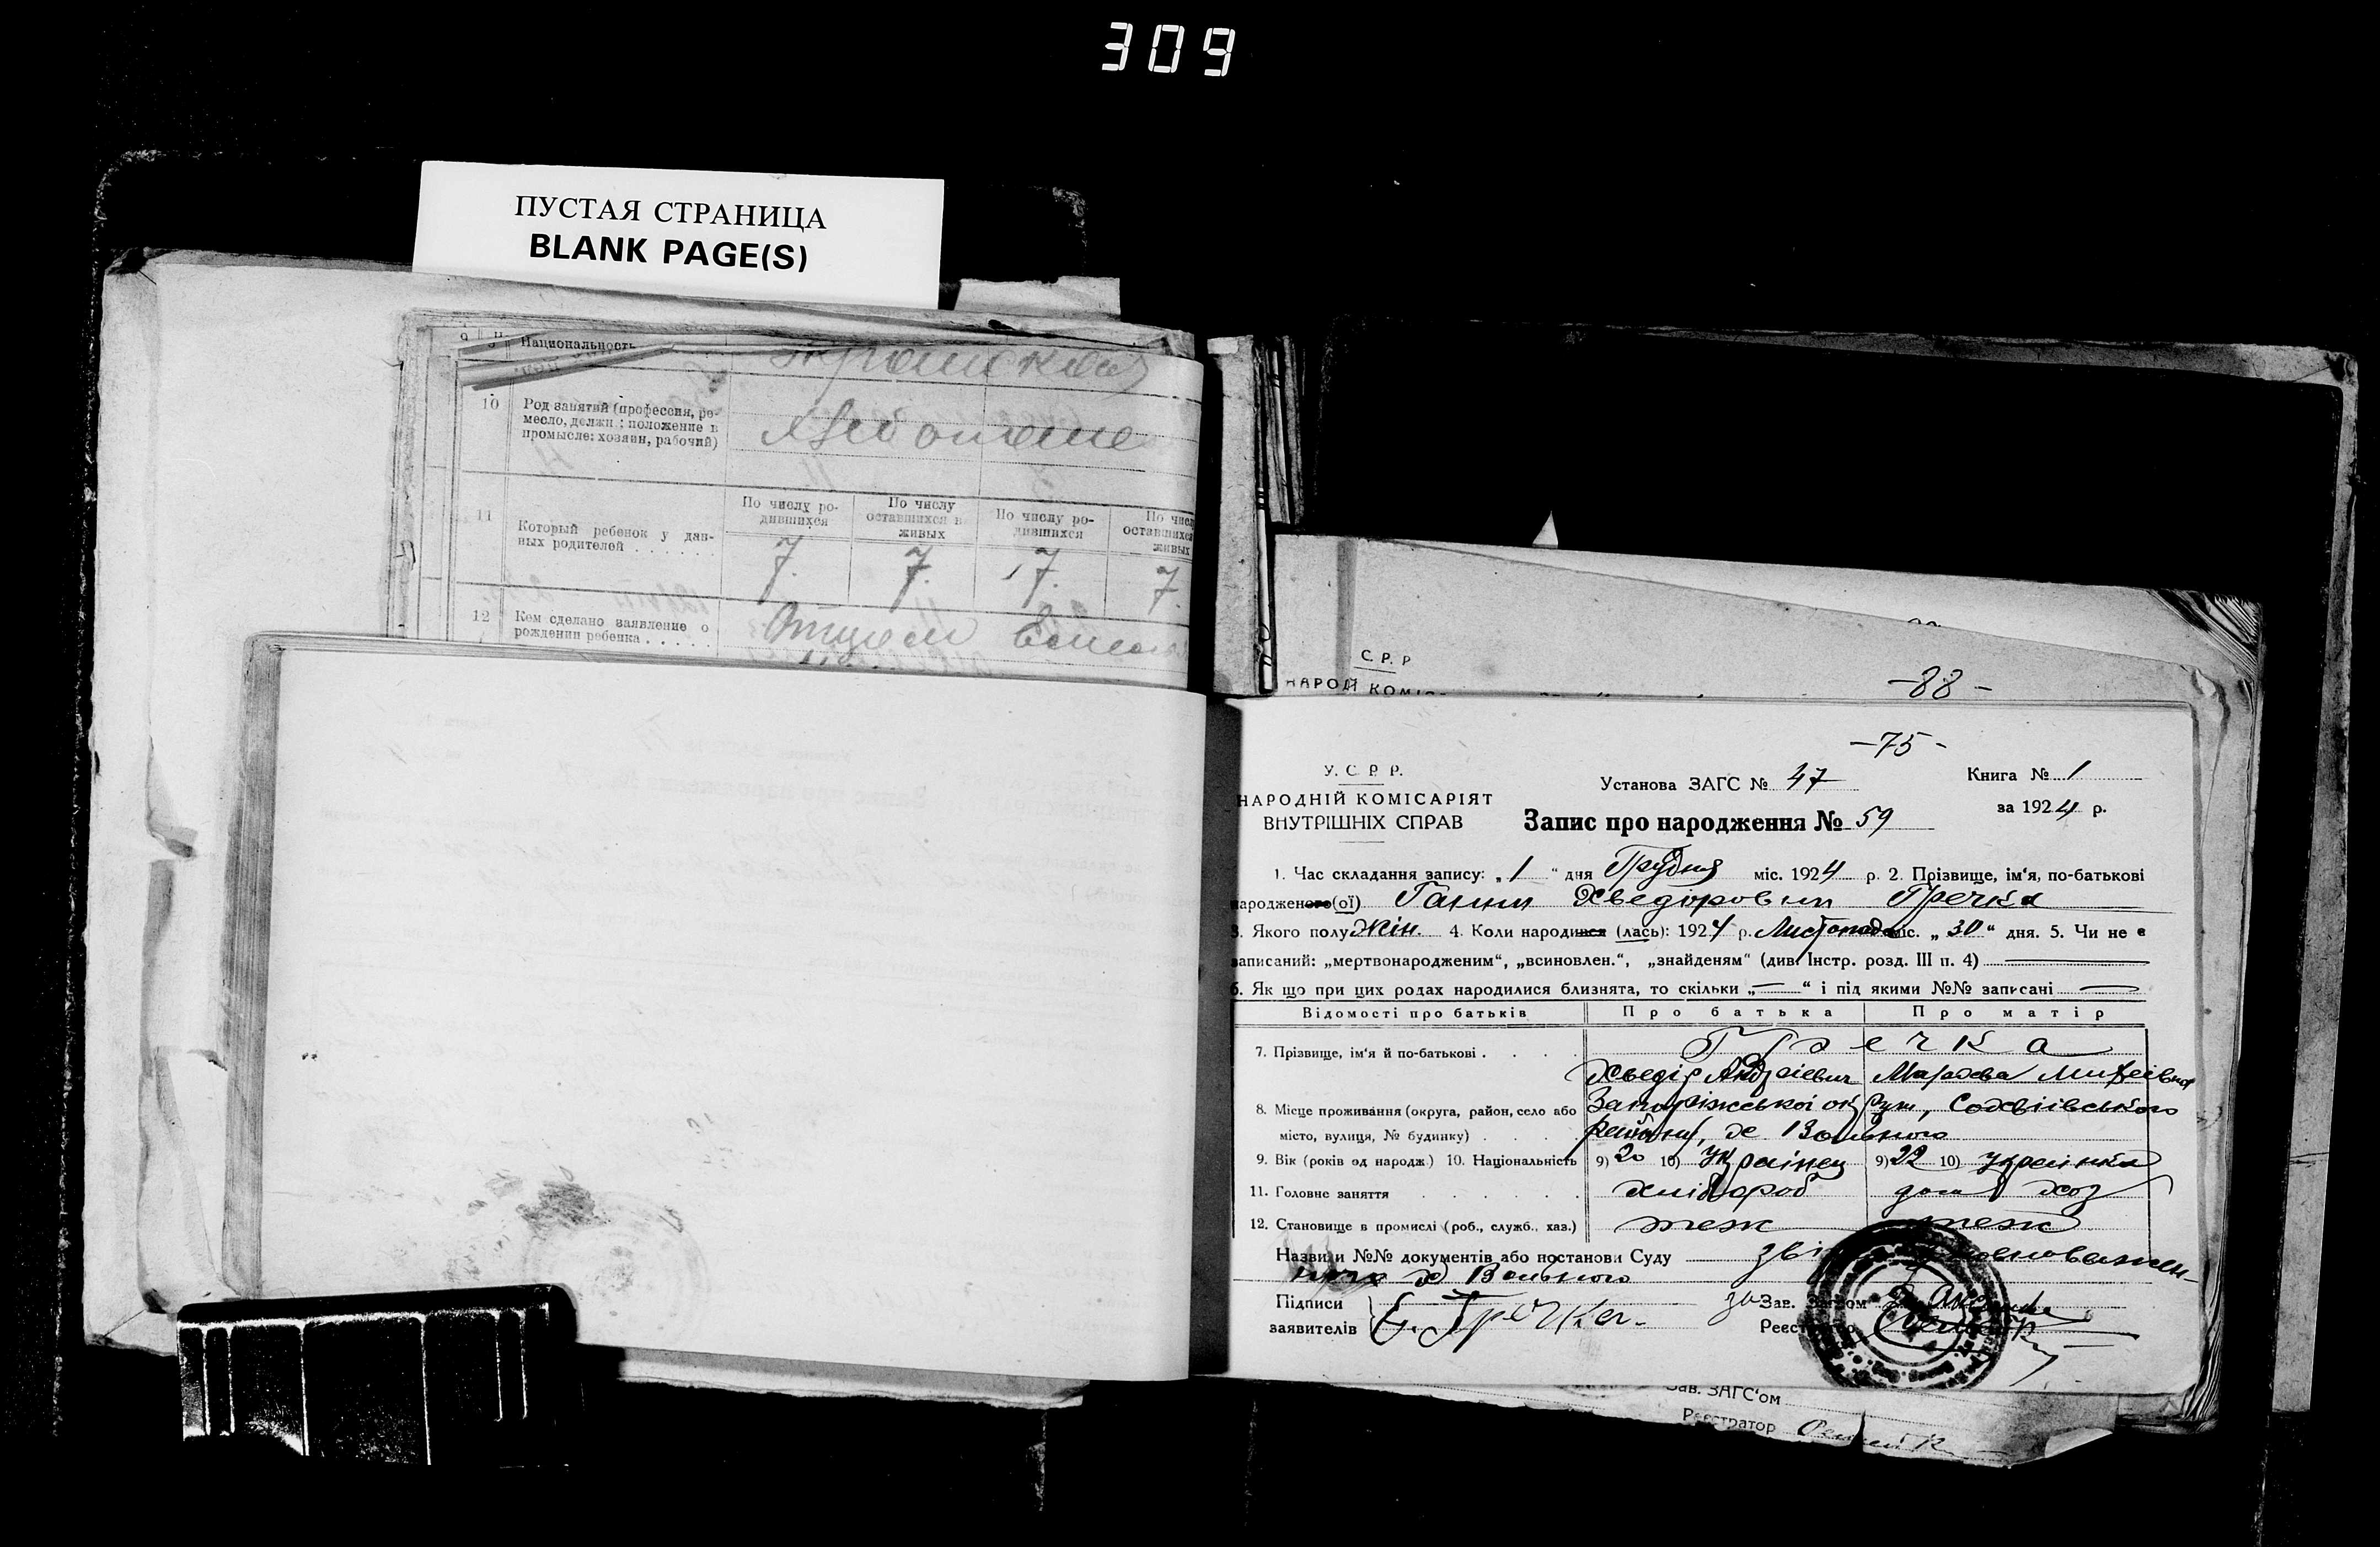 309
ПУСТАЯ СТРАНИЦА
BLANK PAGE(S)
9 Национальность
10 Род занятий (профессия, ре-
месло, должн.; положение в
промысле: хозяин, рабочий)
По числу ро-
дившихся
По числу
оставшихся в
живых
По числу ро-
дившихся
По числ
оставшихся
живых
11 Который ребенок у дан-
ных родителей
7. 7. 7. 7.
12 Кем сделано заявление о
рождении ребенка
Отцем
С. Р. Р
НАРОД КОМІС
-88-
-75-
У. С. Р. Р.
НАРОДНІЙ КОМІСАРІЯТ
ВНУТРІШНІХ СПРАВ
Установа ЗАГС № 47
Книга № 1
за 1924 р.
Запис про народження № 59
1. Час складання запису: „1" дня Грудня міс. 1924 р. 2. Прізвище, ім'я, по-батькові
народженого(ої) Ганни Хведоровни Гречка
3. Якого полу Жін. 4. Коли народився (лась): 1924 р. Листопада міс. „30" дня. 5. Чи не є
записаний: „мертвонародженим", „всиновлен.", „знайденям" (див. Інстр. розд. III п. 4)
6. Як що при цих родах народилися близнята, то скільки „—" і під якими №№ записані
Відомості про батьків Про батька Про матір
7. Прізвище, ім'я й по-батькові . Гречка
Хведір Андріевич Мархва
8. Місце проживання (округа, район, село або Запоріжської округи, Софіівського
місто, вулиця, № будинку) району, х Вольного
9. Вік (років од народж.) 10. Національність 9) 20 10) Українец 9) 22 10) українка
11. Головне заняття хлібороб дом хоз
12. Становище в промислі (роб., служб., хаз.) теж теж
Назви й №№ документів або постанови Суду
х Вольного
Підписи
заявителів Гречка
за Зав. Загсом
Реєстратор
Зав. ЗАГС'ом
Реєстратор